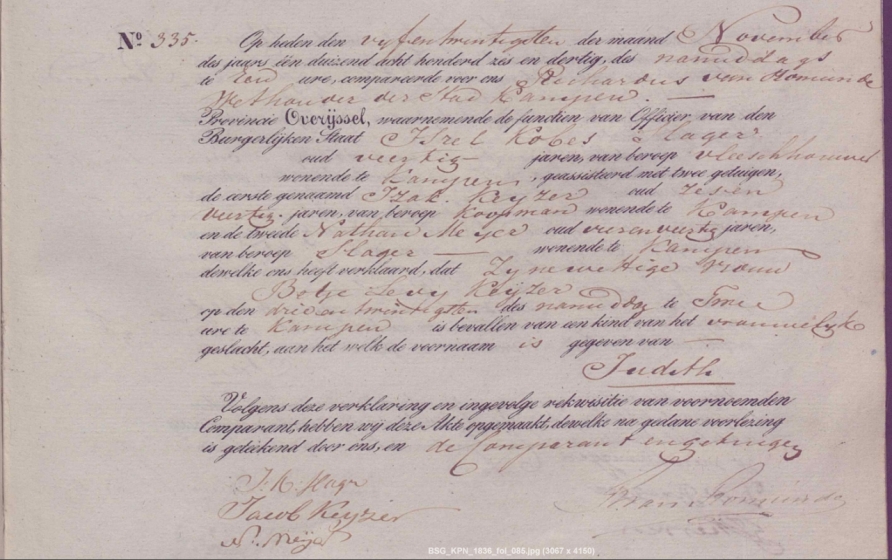 No 335. Op heden den vyfentwintigsten der maand November
des jaars één duizend acht honderd zes en dertig, des namiddags
te Een ure, compareerde voor ons Richardus van Romunde
Wethouder der Stad Kampen. —
Provincie Overijssel, waarnemende de functien van Officier van den
Burgerlijken Staat Isrel Kobes Slager
oud veertig jaren, van beroep vleeschhouwer
wonende te Kampen, geassisteerd met twee getuigen,
de eerste genaamd Izak Keyzer oud zeven
veertig jaren, van beroep Koopman wonende te Kampen
en de tweede Nathan Meyer oud vierenveertig jaren,
van beroep Slager — wonende te Kampen
dewelke ons heeft verklaard, dat Zyne wettige vrouw
Betje Levy Keijzer
op den drieentwintigsten des namiddag te Twee
ure te Kampen is bevallen van een kind van het vrouwelyk
geslacht, aan het welk de voornaam is gegeven van —
Judith
Volgens deze verklaring en ingevolge rekwisitie van voornoemden
Comparant, hebben wij deze Akte opgemaakt, dewelke na gedane voorlezing
is geteekend door ons, en de Comparant en getuigen
I. K. Slager
Jacob Keyzer
N. Meijer
BSG_KPN_1836_fol_085.jpg (3067 x 4150)